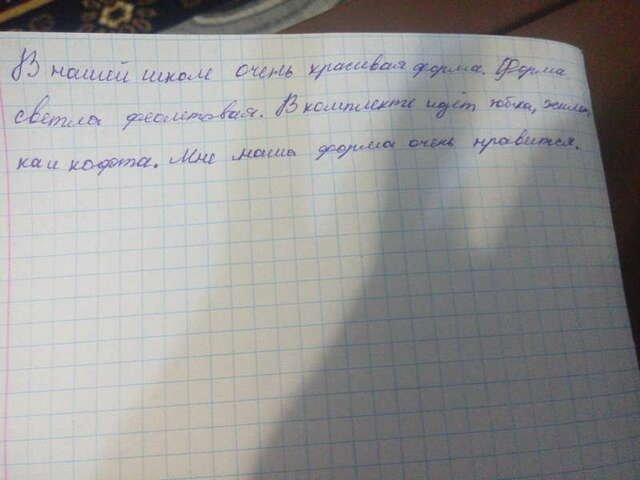 В нашей школе очень красивая форма. Форма
светло фиолетовая. В комплекте идёт, юбка,
кай кофта. Мне наша форма очень нравится.